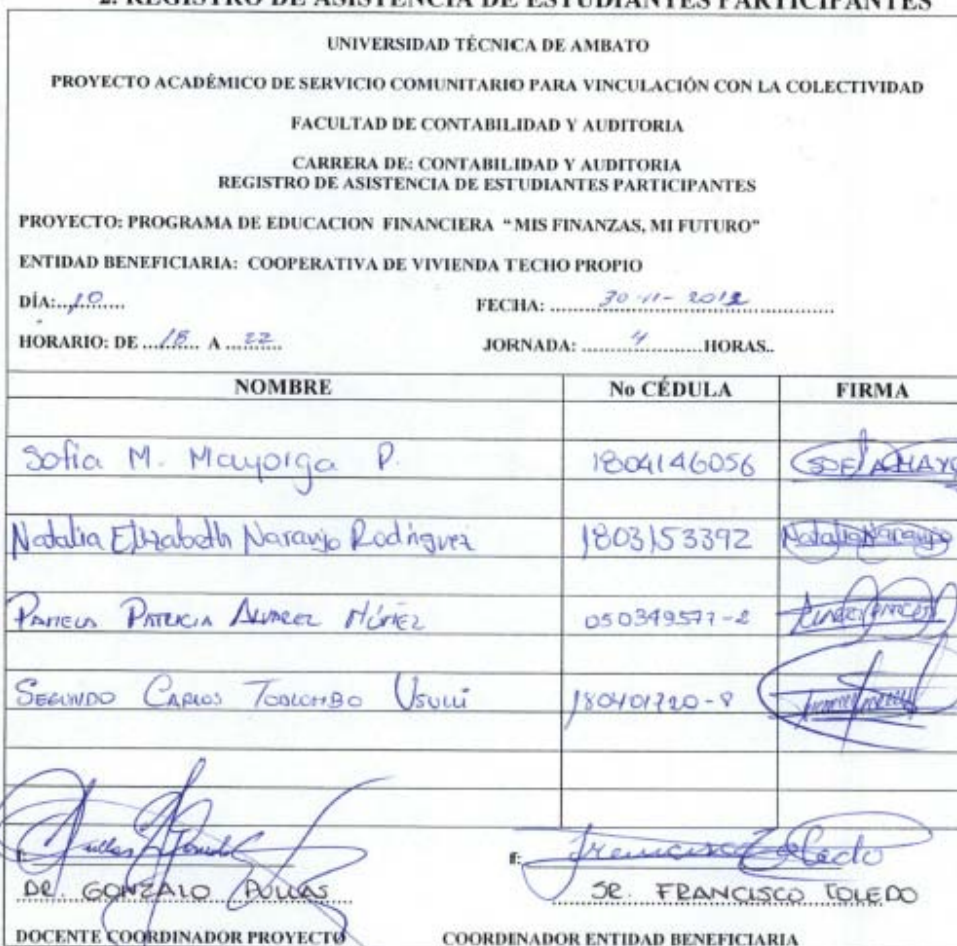 2. REGISTRO DE ASISTENCIA DE ESTUDIANTES PARTICIPANTES
UNIVERSIDAD TÉCNICA DE AMBATO
PROYECTO ACADÉMICO DE SERVICIO COMUNITARIO PARA VINCULACIÓN CON LA COLECTIVIDAD
FACULTAD DE CONTABILIDAD Y AUDITORIA
CARRERA DE: CONTABILIDAD Y AUDITORIA
REGISTRO DE ASISTENCIA DE ESTUDIANTES PARTICIPANTES
PROYECTO: PROGRAMA DE EDUCACION FINANCIERA "MIS FINANZAS, MI FUTURO"
ENTIDAD BENEFICIARIA: COOPERATIVA DE VIVIENDA TECHO PROPIO
DÍA:...10...... FECHA: ......30-11-2012......
HORARIO: DE ...18... A ...22... JORNADA: ......4......HORAS..
NOMBRE No CÉDULA FIRMA
Sofia M. Mayorga P. 1804146056 SOFIA MAYO
Natalia Elizabeth Naranjo Rodriguez 1803153392 Natalia Naranjo
PAMELA PATRICIA ALVAREZ NÚÑEZ 050349577-2
SEGUNDO CARLOS 180401720-8
f: f: Francisco Toledo
DR. GONZALO PULLAS SR. FRANCISCO TOLEDO
DOCENTE COORDINADOR PROYECTO COORDINADOR ENTIDAD BENEFICIARIA